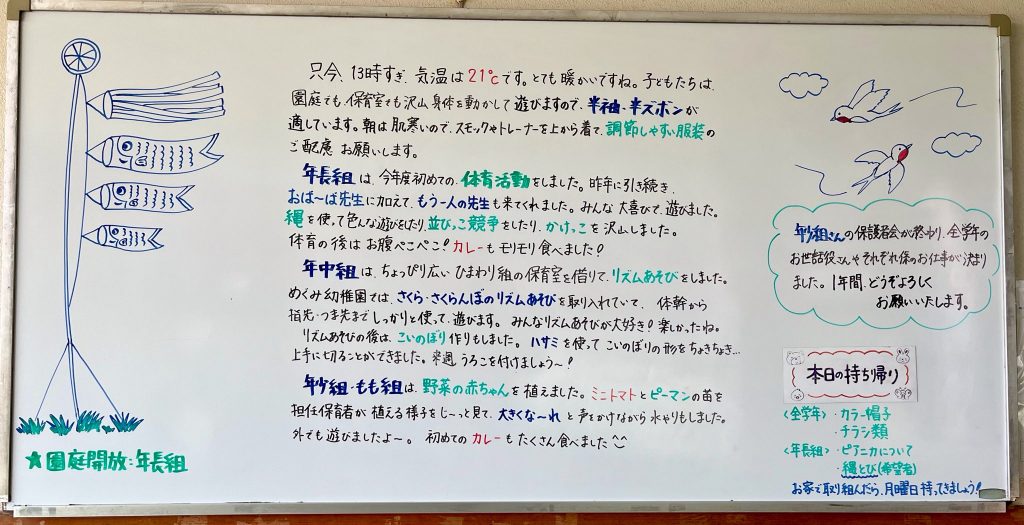 只今、13時すぎ、気温は21℃です。とても暖かいですね。子どもたちは、
園庭でも、保育室でも沢山身体を動かして遊びますので、半袖、半ズボンが
適しています。朝は肌寒いので、スモックやトレーナーを上から着て、調節しやすい服装の
ご配慮お願いします。
年長組は、今年度初めての、体育活動をしました。昨年に引き続き、
おばーば先生に加えて、もう一人の先生も来てくれました。みんな大喜びで、遊びました。
縄を使って色んな遊びをしたり、並びっこ競争をしたり、かけっこを沢山しました。
体育の後はお腹ぺこぺこ!カレーもモリモリ食べました!
年中組は、ちょっぴり広いひまわり組の保育室を借りて、リズムあそびをしました。
めぐみ幼稚園では、さくら・さくらんぼのリズムあそびを取り入れていて、体幹から
指先・つま先までしっかりと使って、遊びます。みんなリズムあそびが大好き!楽しかったね。
リズムあそびの後は、こいのぼり作りもしました。ハサミを使ってこいのぼりの形をちょきちょき…
上手に切ることができました。来週、うろこを付けましょう〜!
年少組・もも組は、野菜の赤ちゃんを植えました。ミニトマトとピーマンの苗を
担任保育者が植える様子をじ〜っと見て、大きくな〜れと声をかけながら水やりもしました。
外でも遊びましたよ〜。初めてのカレーもたくさん食べました
★園庭開放:年長組
年少組さんの保護者会が終わり、全学年の
お世話役さんやそれぞれ係のお仕事が決まり
ました。1年間、どうぞよろしく
お願いいたします。
本日の持ち帰り
〈全学年〉・カラー帽子
・チラシ類
〈年長組〉・ピアニカについて
・縄とび(希望者)
お家で取り組んだら、月曜日持ってきましょう!